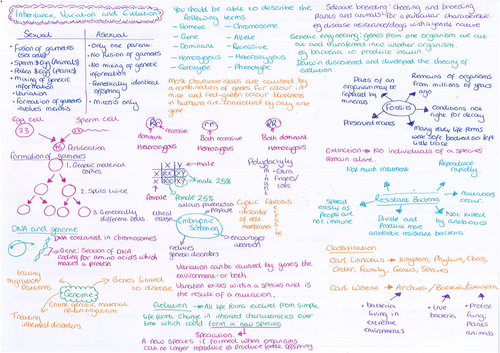 Inheritance, Variation and Evolution
Sexual
• Fusion of gametes (sex cells)
• Sperm & Egg (Animals)
• Pollen & Egg (plants)
• Mixing of genetic information
• Variation
• Formation of gametes involves meiosis
Asexual
• Only one parent
• No fusion of gametes
• No mixing of genetic information
• Genetically identical offspring
• Mitosis only
Egg cell
Sperm cell
23
23
46
Fertilisation
Formation of gametes
1. Genetic material copies
2. Splits twice
3. Genetically different cells
DNA and genome
DNA contained in chromosomes
Gene: Section of DNA
coding for amino acids which
makes a protein
Tracing migration patterns
Genes linked to disease
Genome
Entire genetic material of an organism
Treating inherited disorders
You should be able to describe the
following terms
- Gamete
- Chromosome
- Gene
- Allele
- Dominant
- Recessive
- Homozygous
- Heterozygous
- Genotype
- Phenotype
Most characteristics are caused by
a combination of genes. Fur colour in
mice and red-green colour blindness
in humans are controlled by only one
gene
Rr
rr
RR
Both recessive
Both dominant
Homozygous
Homozygous
male
male 25%
female
Female 25%
Polydactyly
Extra fingers/toes
Cystic fibrosis
disorder of cell membranes
Embryonic Screening
encourages abortion
reduces genetic disorders
Variation can be caused by genes the
environment or both.
Variation exists within a species and is
the result of a mutation.
Evolution → All life forms evolved from simple
life forms. Change in inherited characteristics over
time which could form a new species
Speciation
A new species is formed when organisms
can no longer reproduce to produce fertile offspring
Selective breeding: choosing and breeding
plants and animals for a particular characteristic
eg disease resistance/dogs with a gentle nature
Genetic engineering: genes from one organism are cut
out and transferred into another organism.
eg bacteria to produce insulin
Darwin discovered and developed the theory of
evolution.
Parts of an organism may be replaced by minerals
Remains of organisms from millions of years ago
Fossils
Conditions not right for decay
Preserved traces
Many early life forms were soft bodied so left little trace
Extinction → No individuals of a species
remain alive.
Not much treatment
Reproduce rapidly.
Resistant Bacteria
mutations occur.
Spreads easily as People are not immune
Divide and Produce more antibiotic resistant bacteria
Not killed by antibiotics
Classification
Carl Linnaeus → Kingdom, Phylum, Class,
Order, Family, Genus, Species
Carl Woese → Archaea / Bacteria / Eukaryota
• bacteria living in extreme environments
• true bacteria
• Protists fungi, plants animals